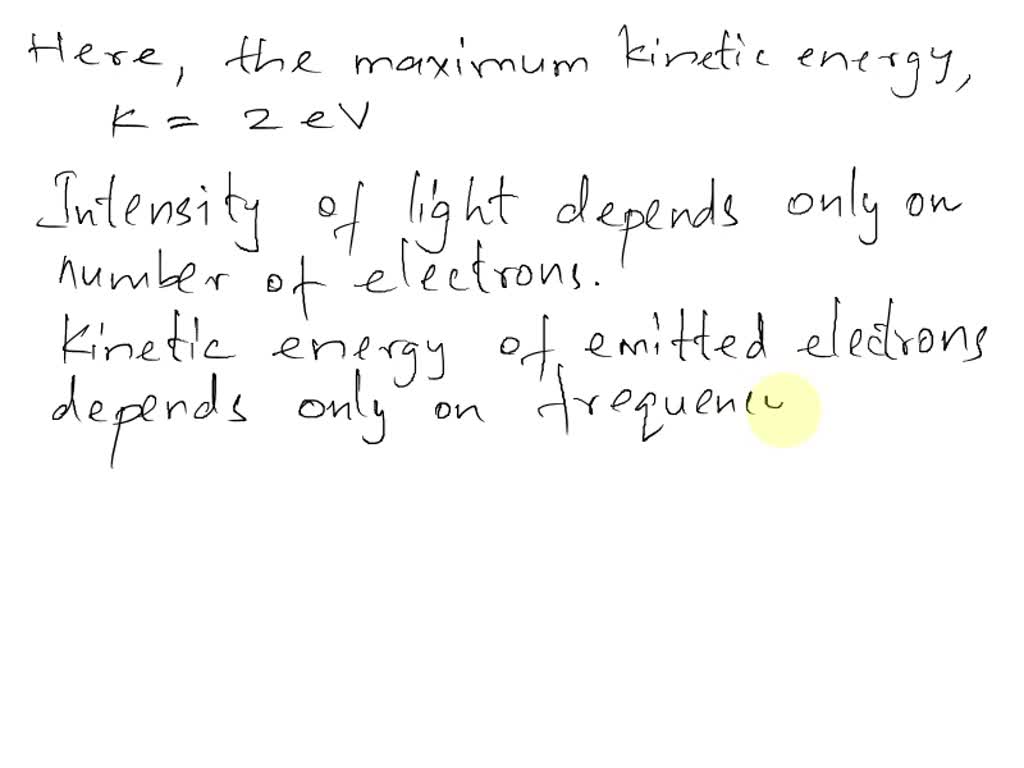 Here, the maximum kinetic energy,
K = 2 eV
Intensity of light depends only on
number of electrons.
Kinetic energy of emitted electrons
depends only on frequenc